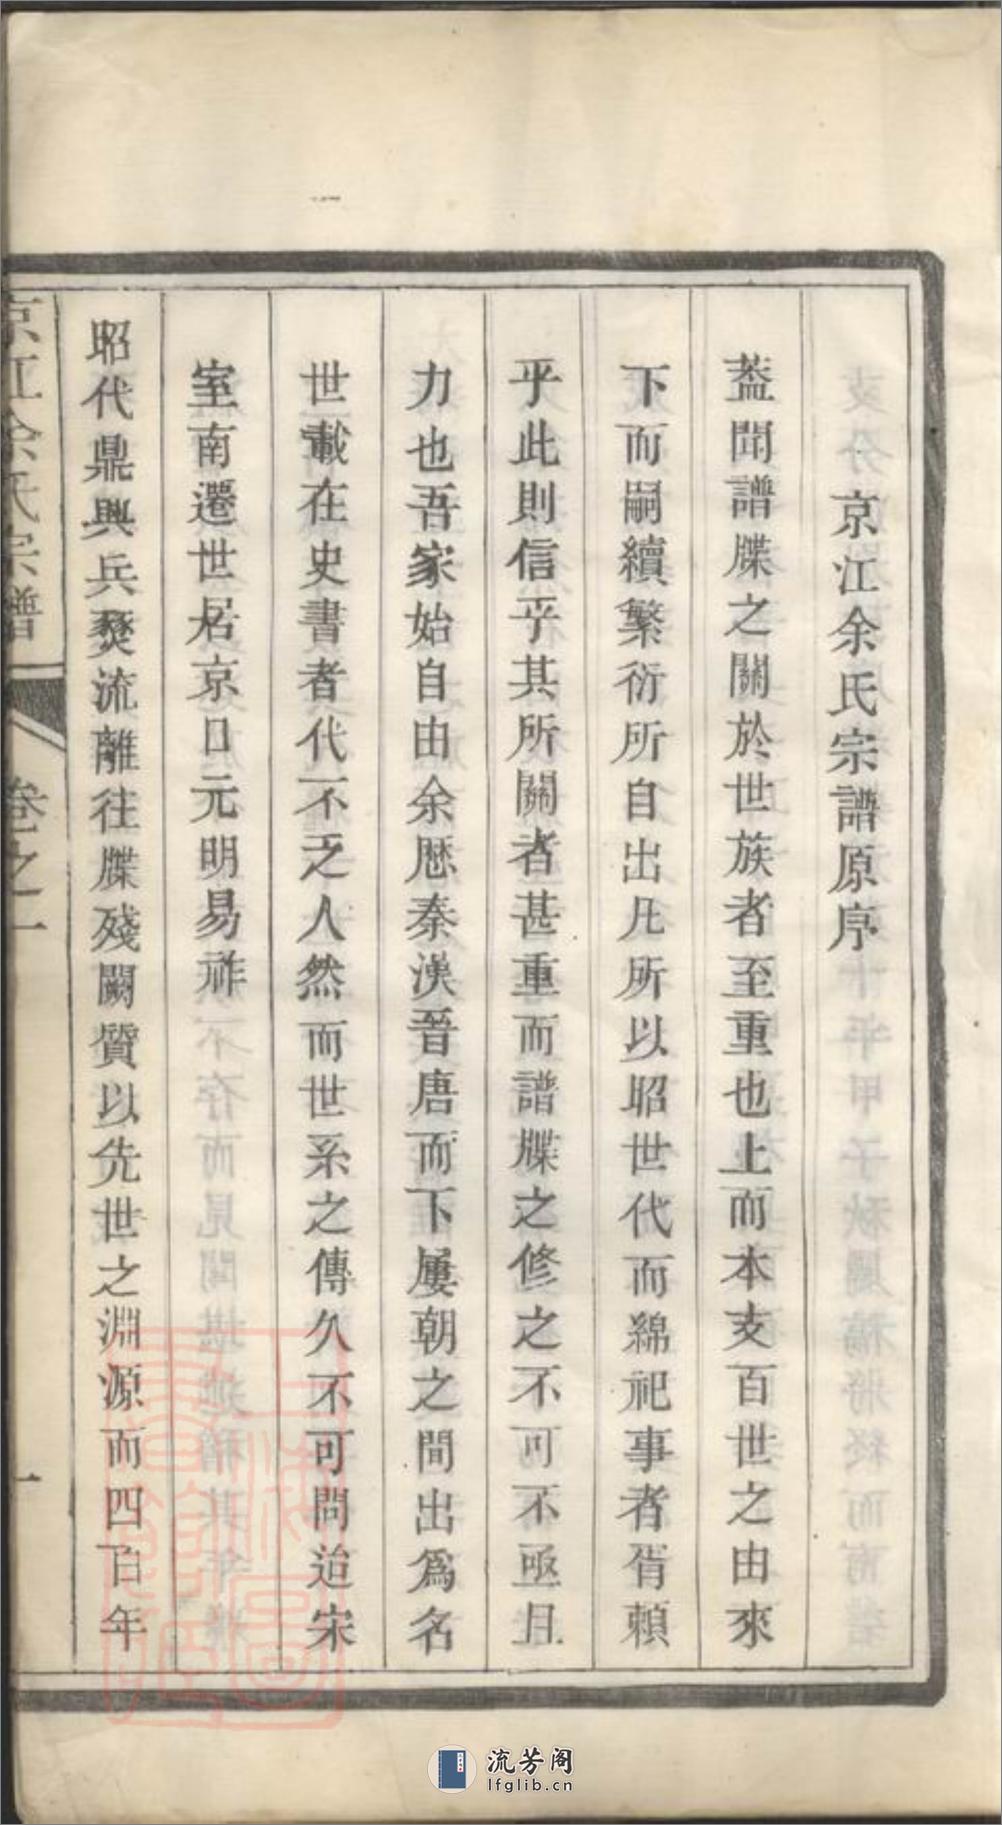 京江余氏宗譜原序
葢聞譜牒之關於世族者至重也上而本支百世之由來
下而嗣續繁衍所自出凡所以昭世代而綿祀事者胥賴
乎此則信乎其所關者甚重而譜牒之修之不可不亟且
力也吾家始自由余歷秦漢晉唐而下屢朝之間出爲名
世載在史書者代不乏人然而世系之傳久不可問迨宋
室南遷世居京口元明易祚
昭代鼎興兵燹流離往牒殘闕質以先世之淵源而四百年
京江余氏宗譜
卷之一
一
流芳阁
lfglib.cn